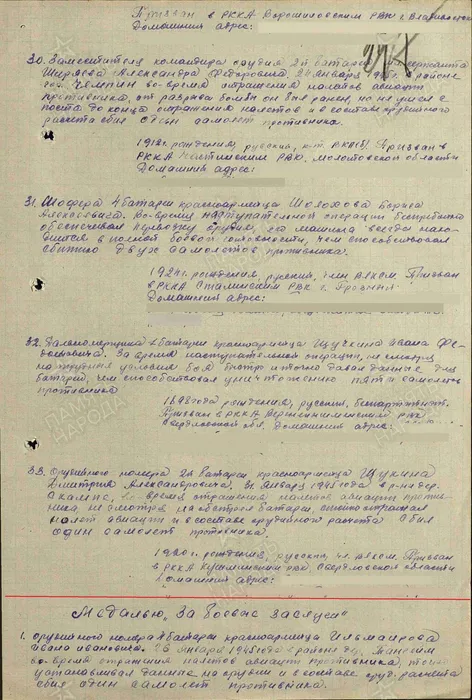 Призван в РККА Ворошиловским РВК г. Владивосток
Домашний адрес:
30. Заместителя командира орудия 2й батареи сержанта
Ширяева Александра Федоровича. 26 января 1945 г. в районе
во время отражения налетов авиации
противника, от разрыва бомбы он был ранен, но не ушел с
поста до конца отражения налетов и в составе орудийного
расчета сбил один самолет противника.
1912 г. рождения, русский, к-т ВКП(б). Призван в
РККА РВК, Молотовской области
Домашний адрес:
31. Шофера 4 батареи красноармейца Шолохова Бориса
Алексеевича. Во время наступательной операции бесперебойно
обеспечивал перевозку орудия, его машина всегда нахо-
дится в полной боевой готовности, чем способствовал
сбитию двух самолетов противника.
1924 г. рождения, русский, член ВЛКСМ. Призван
в РККА Сталинским РВК г. Грозный
Домашний адрес:
32. Дальномерщика батареи красноармейца Щучкина Ивана Фе-
досовича. За время наступательной операции, не смотря
на трудные условия боя быстро и точно давал данные для
батареи, чем способствовал уничтожению пяти самолетов
противника
1898 года рождения, русский, беспартийный.
Призван в РККА РВК
Свердловской обл. Домашний адрес:
33. Орудийного номера 2й батареи красноармейца Щукина
Дмитрия Александровича. 31 января 1945 года в р-не дер.
во время отражения налетов авиации проти-
вника, не смотря на обстрел батареи, отражал
налет авиации и в составе орудийного расчета сбил
один самолет противника.
рождения, русский, чл. ВЛКСМ. Призван
в РККА Кушвинским РВК, Свердловской области
Домашний адрес:
Медалью „За боевые заслуги"
1. Орудийного номера батареи красноармейца
Ивана Ивановича. 26 января 1945 года в районе дер.
во время отражения налетов авиации противника, точно
устанавливал данные на орудии и в составе оруд. расчета
сбил один самолет противника.
ПАМЯТЬ
НАРОДА